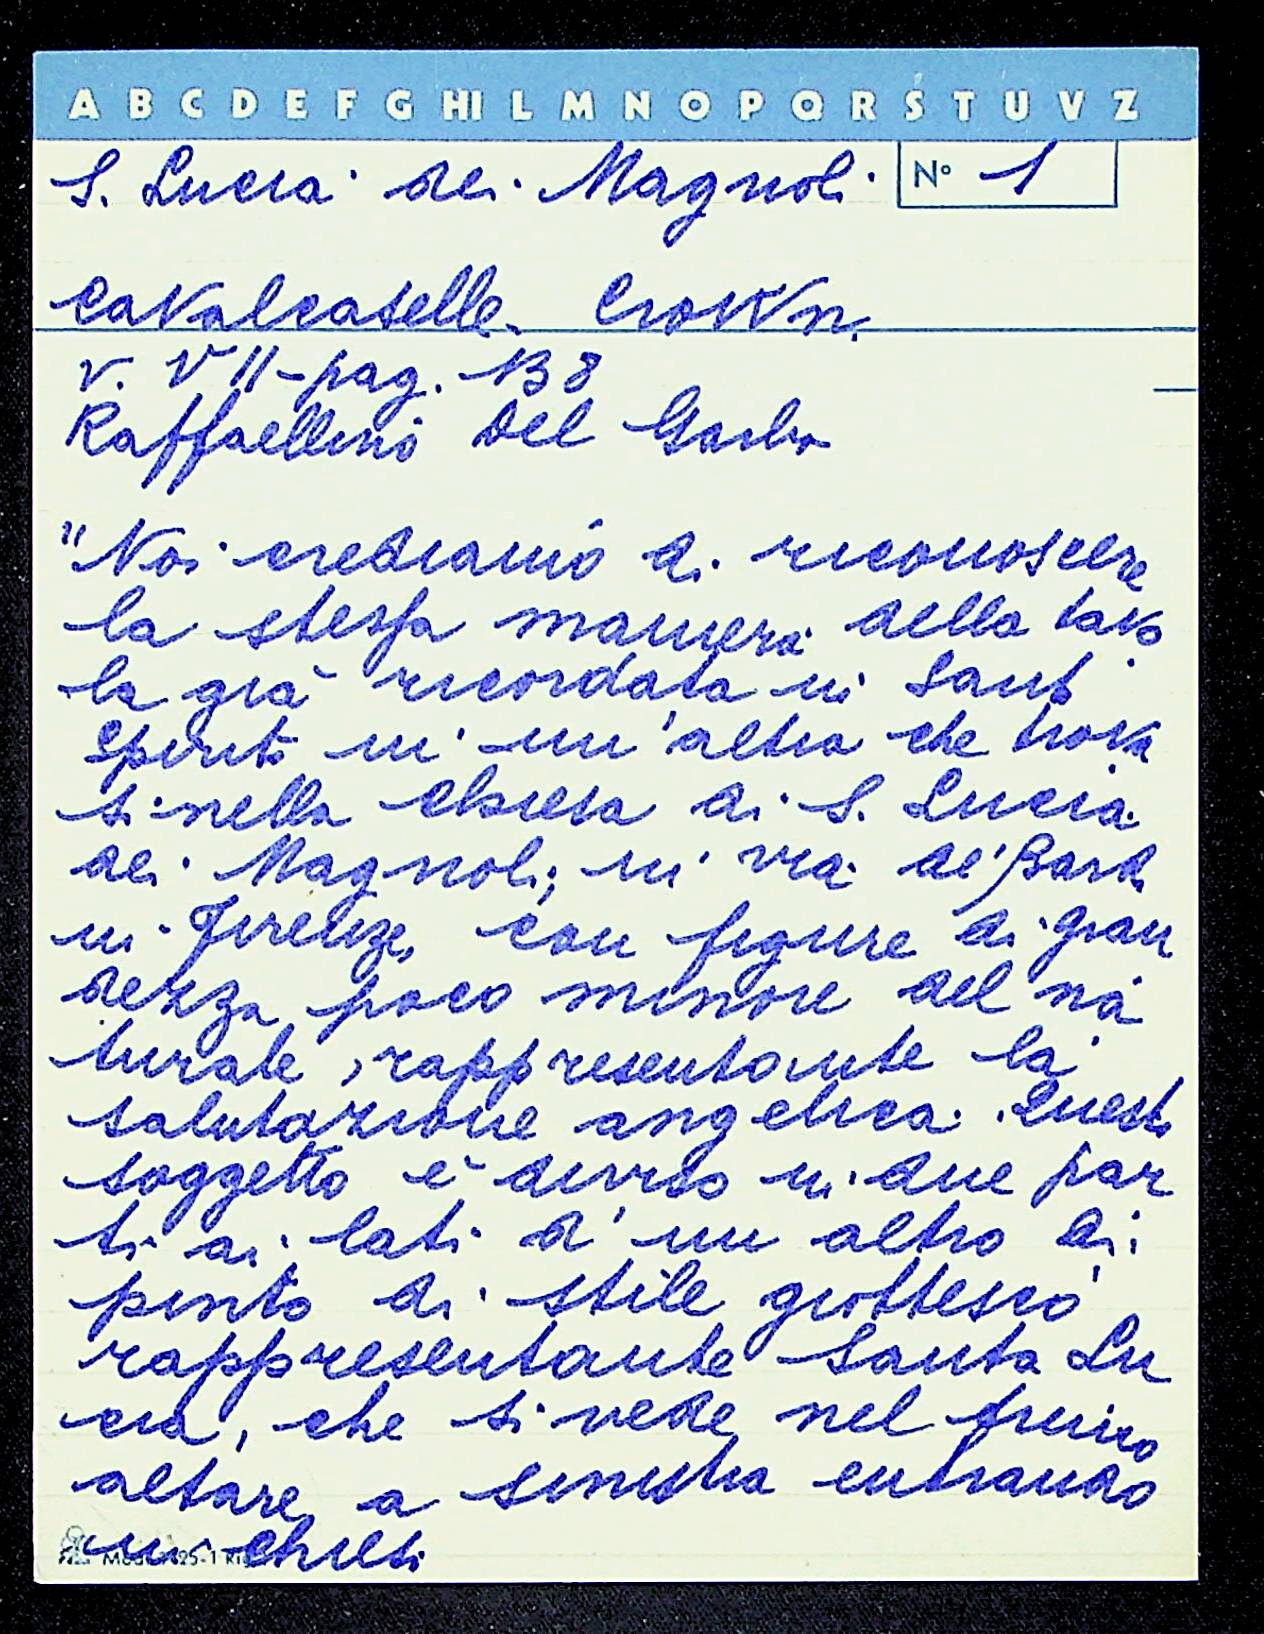 A B C D E F G HI L M N O P Q R S T U V Z
S. Lucia dei Magnoli Nº 1
Cavalcaselle. Crown.
V. VII - pag. 138
Raffaellino Del Garbo
"Noi crediamo di riconoscere
la stessa maniera della tavo
la già ricordata in Sant
Spirito in un'altra che trova
si nella chiesa di S. Lucia
dei Magnoli; in via de' Bardi
in Firenze, con figure di gran
dezza poco minore del na
turale, rappresentante la
salutazione angelica. Questo
soggetto è diviso in due par
ti ai lati d'un altro di
pinto di stile giottesco
rappresentante Santa Lu
cia, che si vede nel primo
altare a sinistra entrando
in chiesa